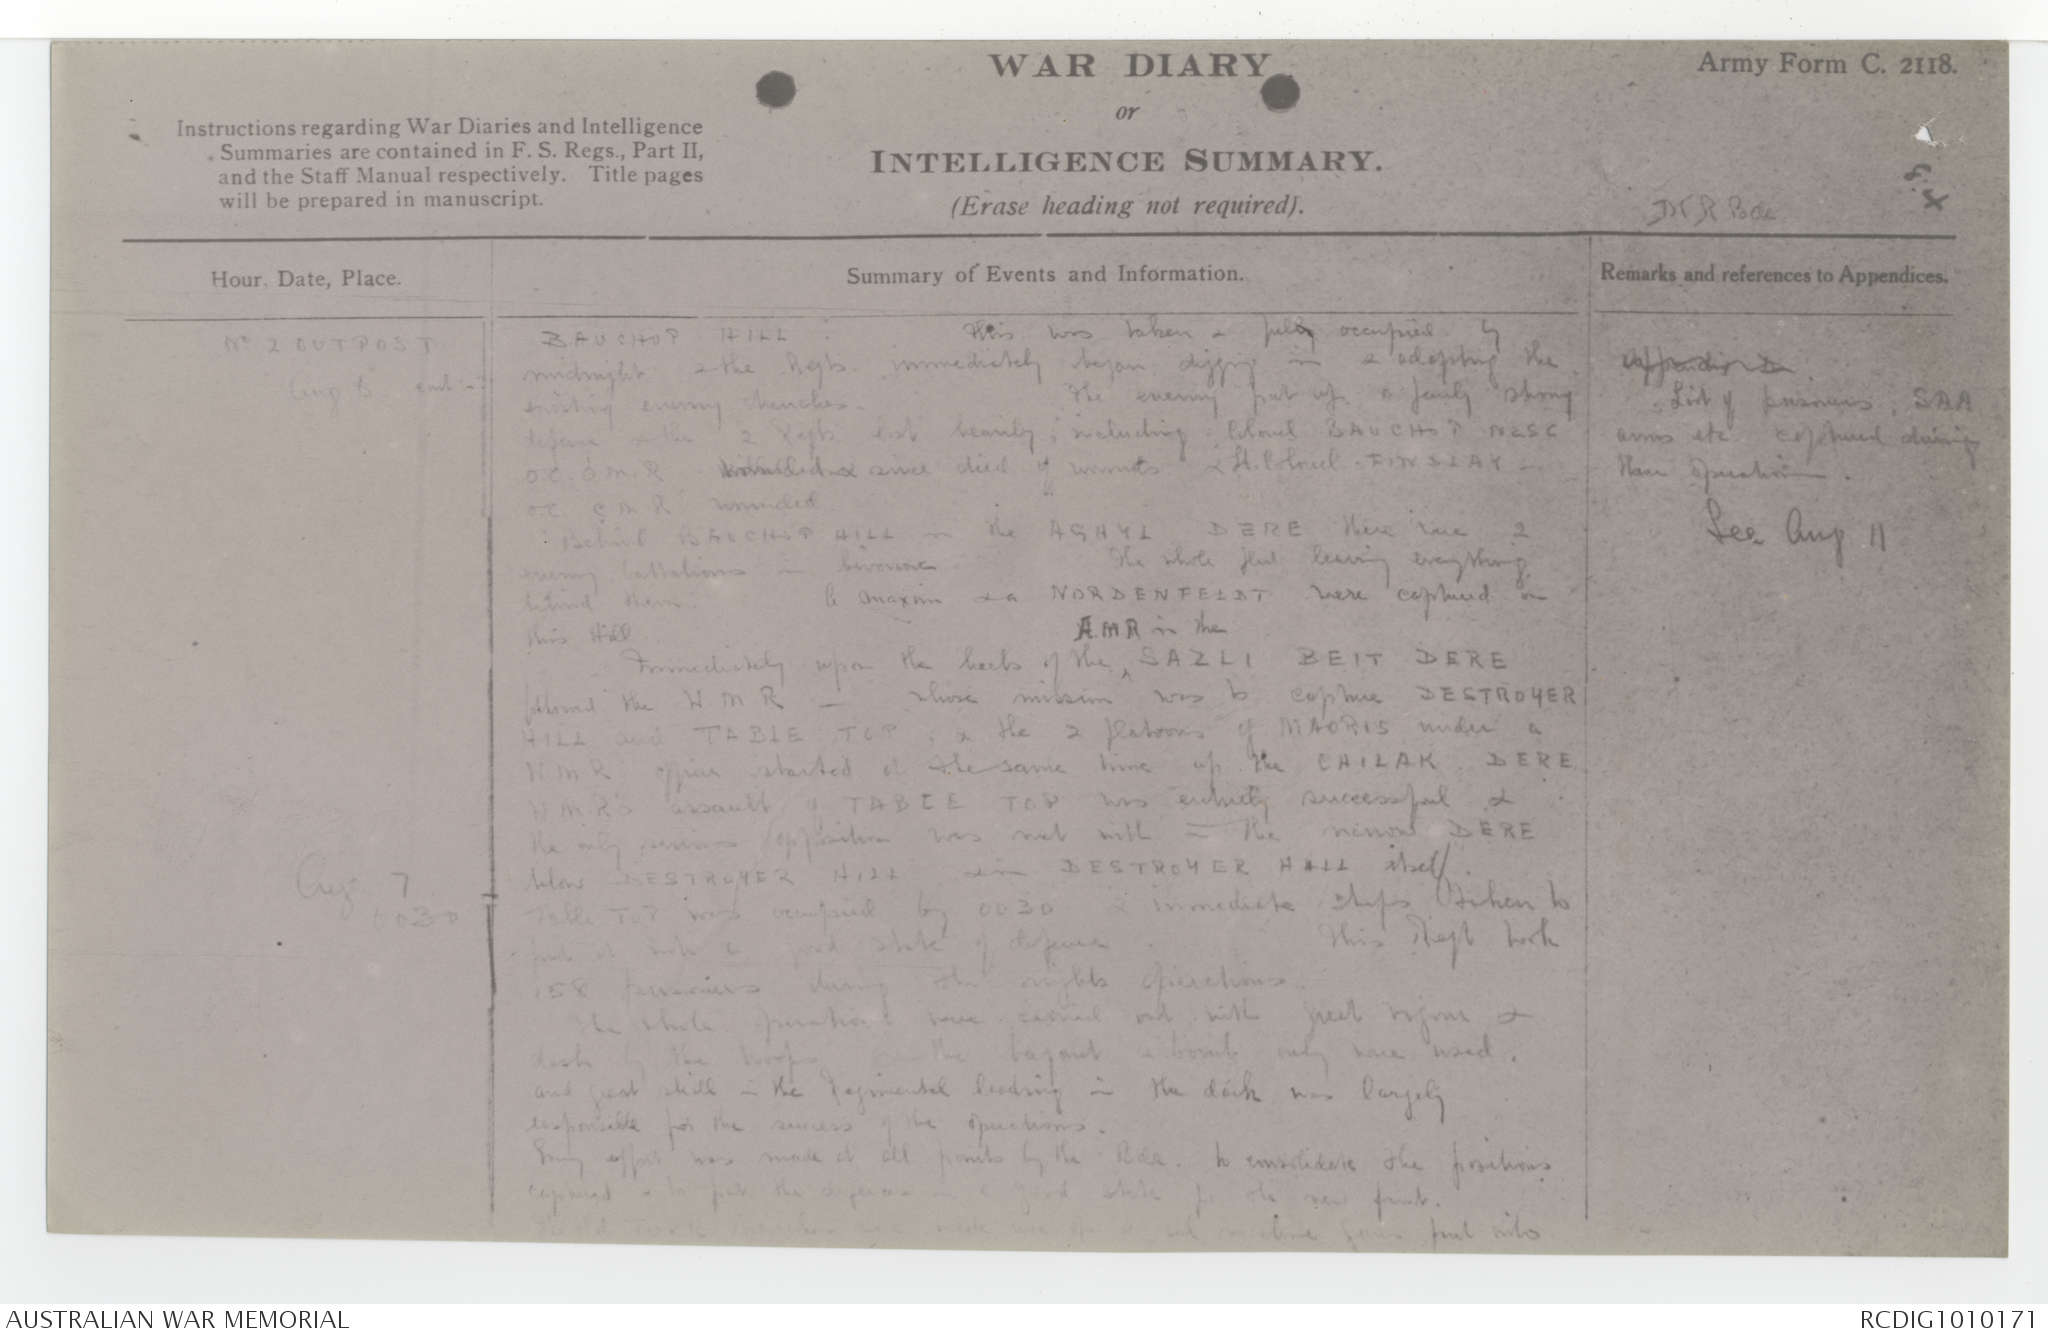 WAR DIARY
or
INTELLIGENCE SUMMARY.
(Erase heading not required).
Army Form C. 2118.
Instructions regarding War Diaries and Intelligence
Summaries are contained in F. S. Regs., Part II,
and the Staff Manual respectively. Title pages
will be prepared in manuscript.
Hour, Date, Place.
Summary of Events and Information.
Remarks and references to Appendices.
No 2 OUTPOST
Aug 6 cont
BAUCHOP HILL : This was taken & fully occupied by
midnight & the Regts immediately began digging in & adapting the
existing enemy trenches. The enemy put up a fairly strong
defence & the 2 Regts lost heavily, including Colonel BAUCHOP
OC. O.M.R. since died of wounds & Lt. Colonel FINDLAY
OC. C.M.R. wounded.
Behind BAUCHOP HILL in the AGHYL DERE there were 2
enemy battalions in bivouac. The whole fled leaving everything
behind them. A maxim & a NORDENFELDT were captured on
this Hill
AMR in the
Immediately upon the heels of the SAZLI BEIT DERE
followed the WMR - whose mission was to capture DESTROYER
HILL and TABLE TOP, & the 2 platoons of MAORIS under a
WMR officer started at the same time up the CHILAK DERE
WMR's assault of TABLE TOP was entirely successful &
the only serious opposition was met with in the narrow DERE
below DESTROYER HILL & in DESTROYER HILL itself.
Aug 7
0030
Table TOP was occupied by 0030 & immediate steps taken to
put it into a good state of defence. This Regt took
158 prisoners during the nights operations.
The whole operations were carried out with great vigour &
dash by the troops the bayonet & bomb only were used.
and great skill in the Regimental leading in the dark was largely
responsible for the success of the operations.
Every effort was made at all points by the Bde. to consolidate the positions
captured & to put the defences in a good state for the new front.
guns put into
List of prisoners, SAA
arms etc captured during
these operations.
See Aug 11